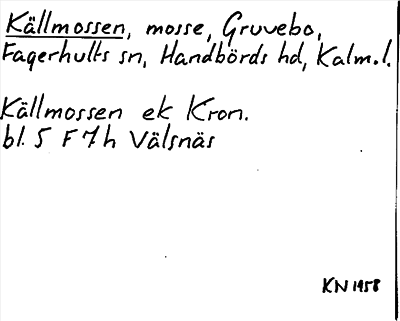 Källmossen, mosse, Gruvebo,
Fagerhults sn, Handbörds hd, Kalm.l.
Källmossen ek Kron.
bl. 5 F 7 h Välsnäs
KN 1958